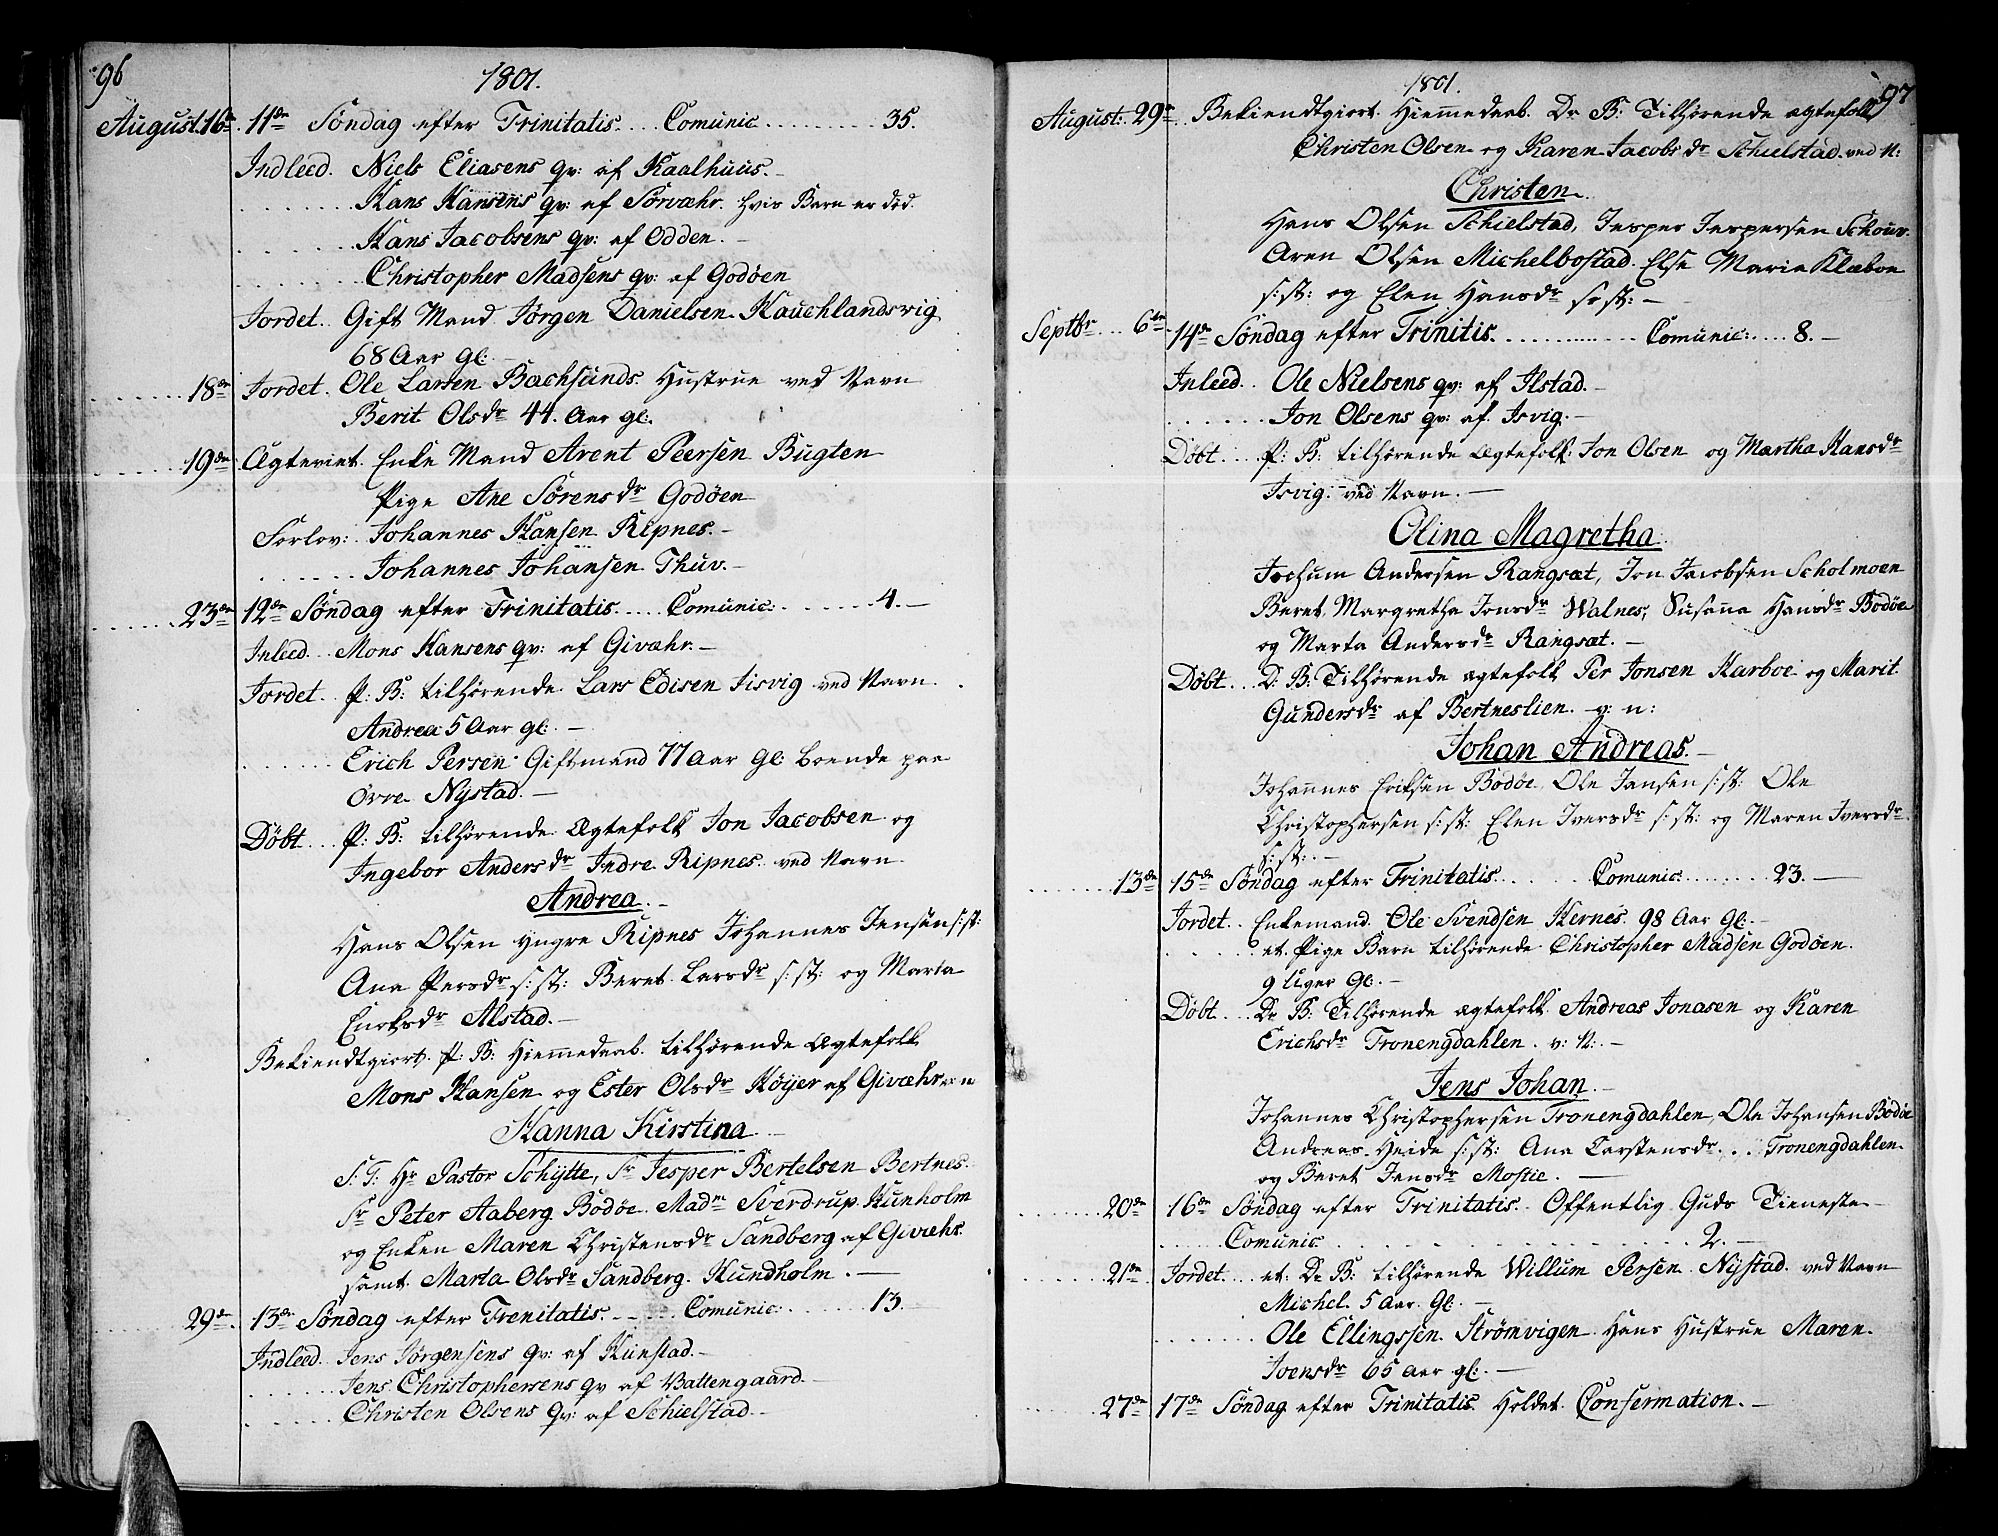 96
1801.
August. 16de 11de Søndag efter Trinitatis .... Comunic ........... 35.
Indleed. Niels Eliasens qv: af Kaalhuus.
Hans Hansens qv: af Sørvæhr. hvis Barn er død.
Hans Jacobsens qv: af Odden.
Christopher Madsens qv: af Godøen
Jordet. Gift Mand Jørgen Danielsen Kauchlandsvig
68 Aar gl:
18de Jordet. Ole Larsen Bachsunds Hustrue ved Navn
Berit Olsdr 44. Aar gl:
19de Ægteviet. Enke Mand Arent Peersen Bugten
Pige Ane Sørensdr Godøen
Forlov: Johannes Hansen Ripnes.
Johannes Johansen Thuv.
23de 12de Søndag efter Trinitatis .... Comunic: ........ 4.
Inleed. Mons Hansens qv: af Givæhr.
Jordet. P: B: tilhørende Lars Edisen Jisvig ved Navn
Andrea 5 Aar gl:
Erich Persen Giftmand 77 Aar gl: boende paa
Øvre Nystad.
Døbt P: B: tilhørende Ægtefolk Jon Jacobsen og
Ingebor Andersdr Indre Ripnes ved Navn
Andrea.
Hans Olsen yngre Ripnes Johannes Jensen s: st:
Ana Persdr s: st: Beret Larsdr s: st: og Marta
Alstad.
Bekiendtgiort P: B: Hiemmedøb. tilhørende Ægtefolk
Mons Hansen og Ester Olsdr Høyer af Givæhr
Hanna Kirstina
S: T: Hr Pastor Schytte, Sr Jesper Bertelsen Bertnes.
Sr Peter Aaberg Bodøe Madm Sverdrup Kunholm
og Enken Maren Christensdr Sandberg af Givæhr.
samt Marta Olsdr Sandberg. Kundholm.
29de 13de Søndag efter Trenitatis ...... Comunic: ...... 13.
Indleed. Jens Jørgensens qv: af Kunstad.
Jens Christophersens qv af Vattengaard.
Christen Olsens qv: af Schielstad
1801.
97
August. 29de Bekiendtgiort Hiemmedøb. Dr B: Tilhørende ægtefolk
Christen Olsen og Karen Jacobsdr Schielstad ved N:
Christen
Hans Olsen Schielstad, Jesper Jespersen Schouv.
Aren Olsen Michelbostad Else Maria Klæboe
s: st: og Elen Hansdr s: st:
Septbr 6te 14de Søndag efter Trinitis. ............ Comunic: .... 8.
Inleed. Ole Nielsens qv: af Ilstad.
Jon Olsens qv: af Jsvig.
Døbt. P: B: tilhørende Ægtefolk: Jon Olsen og Martha Hansdr
Jsvig ved Navn.
Olina Magretha
Jochum Andersen Rangsæt, Jon Jacobsen Scholmoen
Beret Margretha Jonsdr Walnes, Susana Hansdr Bodøe
og Marta Andersdr Rangsæt.
Døbt D: B: Tilhørende ægtefolk Per Jonsen Karboe og Marit
Gundersdr af Bertneslien v: n:
Johan Andreas.
Johannes Eriksen Bodøe, Ole Jansen s: st: Ole
Christophersen s: st: Elen Iversdr s: st: og Maren Iversdr
s: st:
13de 15de Søndag efter Trinitatis ...... Comunic: ....... 23.
Jordet. Enkemand Ole Svendsen Kernes 98 Aar gl:
et Pige Barn tilhørende Christopher Madsen Godøen.
9 Uger gl:
Døbt. Dr B: Tilhørende ægtefolk Andreas Jonasen og Karen
Erichsdr Tronengdahlen. v: N:
Jens Johan.
Johannes Christophersen Tronengdahlen, Ole Johansen Bodøe
Andreas Heide s: st: Ana Carstensdr. .. Tronengdahlen.
og Beret Jensdr Mostie.
20de 16de Søndag efter Trinitatis. Offentlig Guds Tieneste
Comunic .................... 2.
21de Jordet. et Dr B: tilhørende Willum Persen Nystad ved Navn
Michel 5 Aar. gl:
Ole Ellingssen Strømvigen Hans Hustrue Maren
Joensdr 65 aar gl:
27de 17de Søndag efter Trinitatis Holdet Confermation.